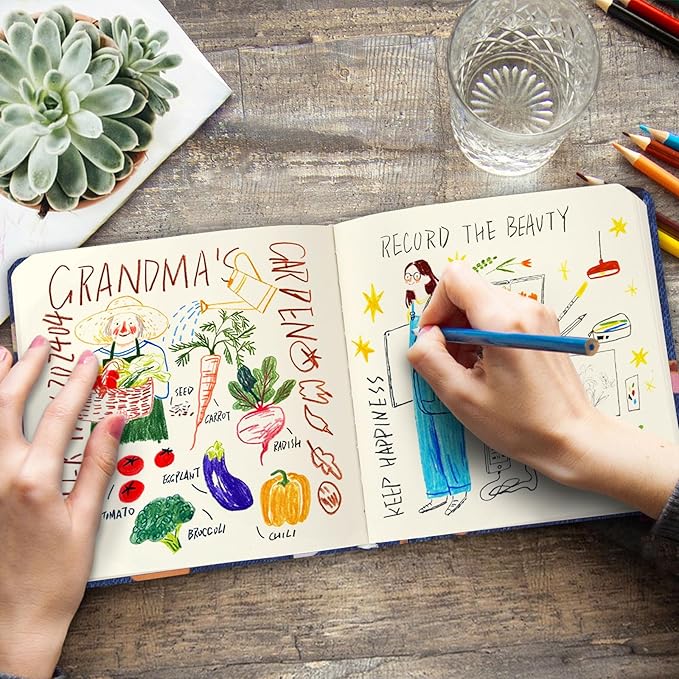 GRANDMA'S
GARDEN
202404
SEED
CARROT
RADISH
EGGPLANT
TOMATO
BROCCOLI
CHILI
RECORD THE BEAUTY
KEEP HAPPINESS